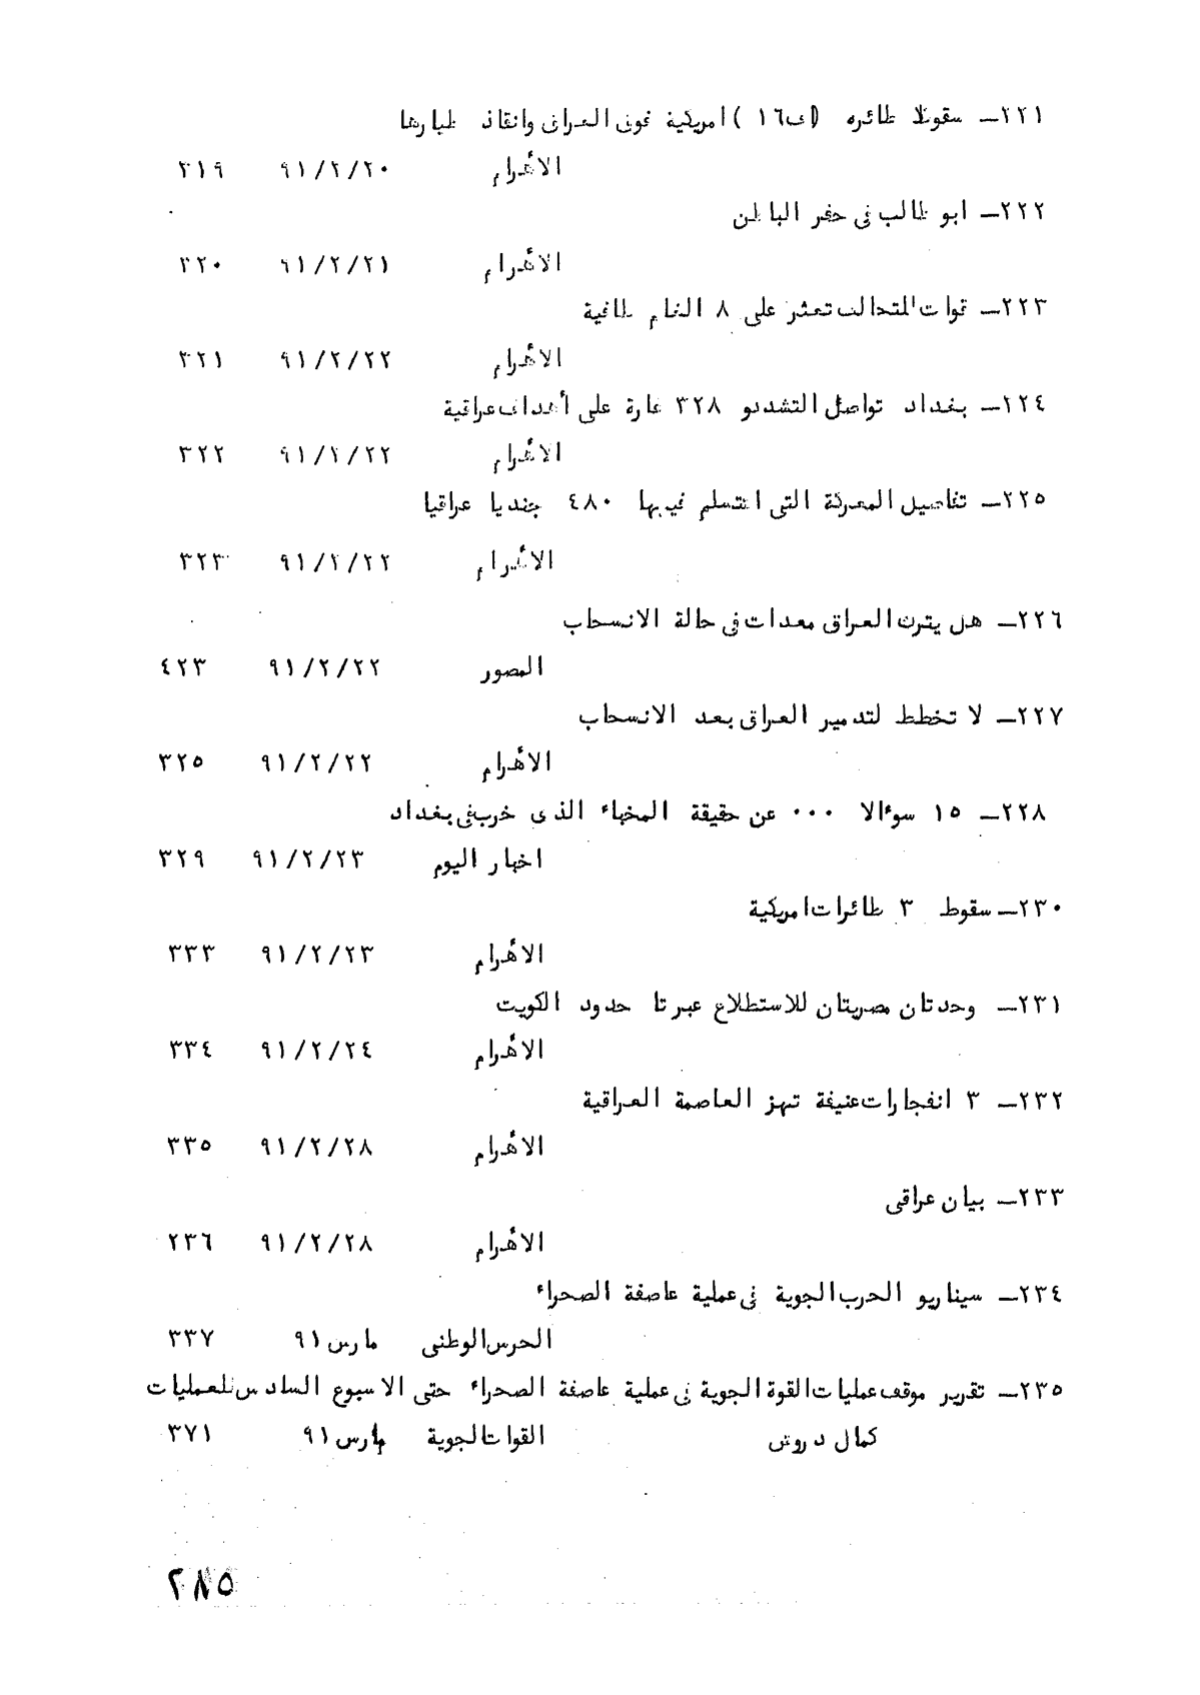 ٢٢١ــ سقوط طائره (اف١٦) امريكية فوق العراق وانقاذ طيارها
الأهرام ٩١/٢/٢٠ ٣١٩
٢٢٢ــ ابو طالب فى حفر الباطن
الأهرام ٩١/٢/٢١ ٣٢٠
٢٢٣ــ قوات المتحالف تعثر على ٨ الغام طافية
الأهرام ٩١/٢/٢٢ ٣٢١
٢٢٤ــ بغداد تواصل التشدد و ٣٢٨ غارة على أهداف عراقية
الأهرام ٩١/٢/٢٢ ٣٢٢
٢٢٥ــ تفاصيل المعركة التى استسلم فيها ٤٨٠ جنديا عراقيا
الأهرام ٩١/٢/٢٢ ٣٢٣
٢٢٦ــ هل يترك العراق معدات فى حالة الانسحاب
المصور ٩١/٢/٢٢ ٤٢٣
٢٢٧ــ لا تخطط لتدمير العراق بعد الانسحاب
الأهرام ٩١/٢/٢٢ ٣٢٥
٢٢٨ــ ١٥ سوءالا ٠٠٠ عن حقيقة المخباء الذى خرب فى بغداد
اخبار اليوم ٩١/٢/٢٣ ٣٢٩
٢٣٠ــ سقوط ٣ طائرات امريكية
الأهرام ٩١/٢/٢٣ ٣٣٣
٢٣١ــ وحدتان مصريتان للاستطلاع عبرتا حدود الكويت
الأهرام ٩١/٢/٢٤ ٣٣٤
٢٣٢ــ ٣ انفجارات عنيفة تهز العاصمة العراقية
الأهرام ٩١/٢/٢٨ ٣٣٥
٢٣٣ــ بيان عراقى
الأهرام ٩١/٢/٢٨ ٢٣٦
٢٣٤ــ سيناريو الحرب الجوية فى عملية عاصفة الصحراء
الحرس الوطنى مارس ٩١ ٣٣٧
٢٣٥ــ تقرير موقف عمليات القوة الجوية فى عملية عاصفة الصحراء حتى الاسبوع السادس للعمليات
كمال دروش القوات الجوية مارس ٩١ ٣٧١
٢٨٥